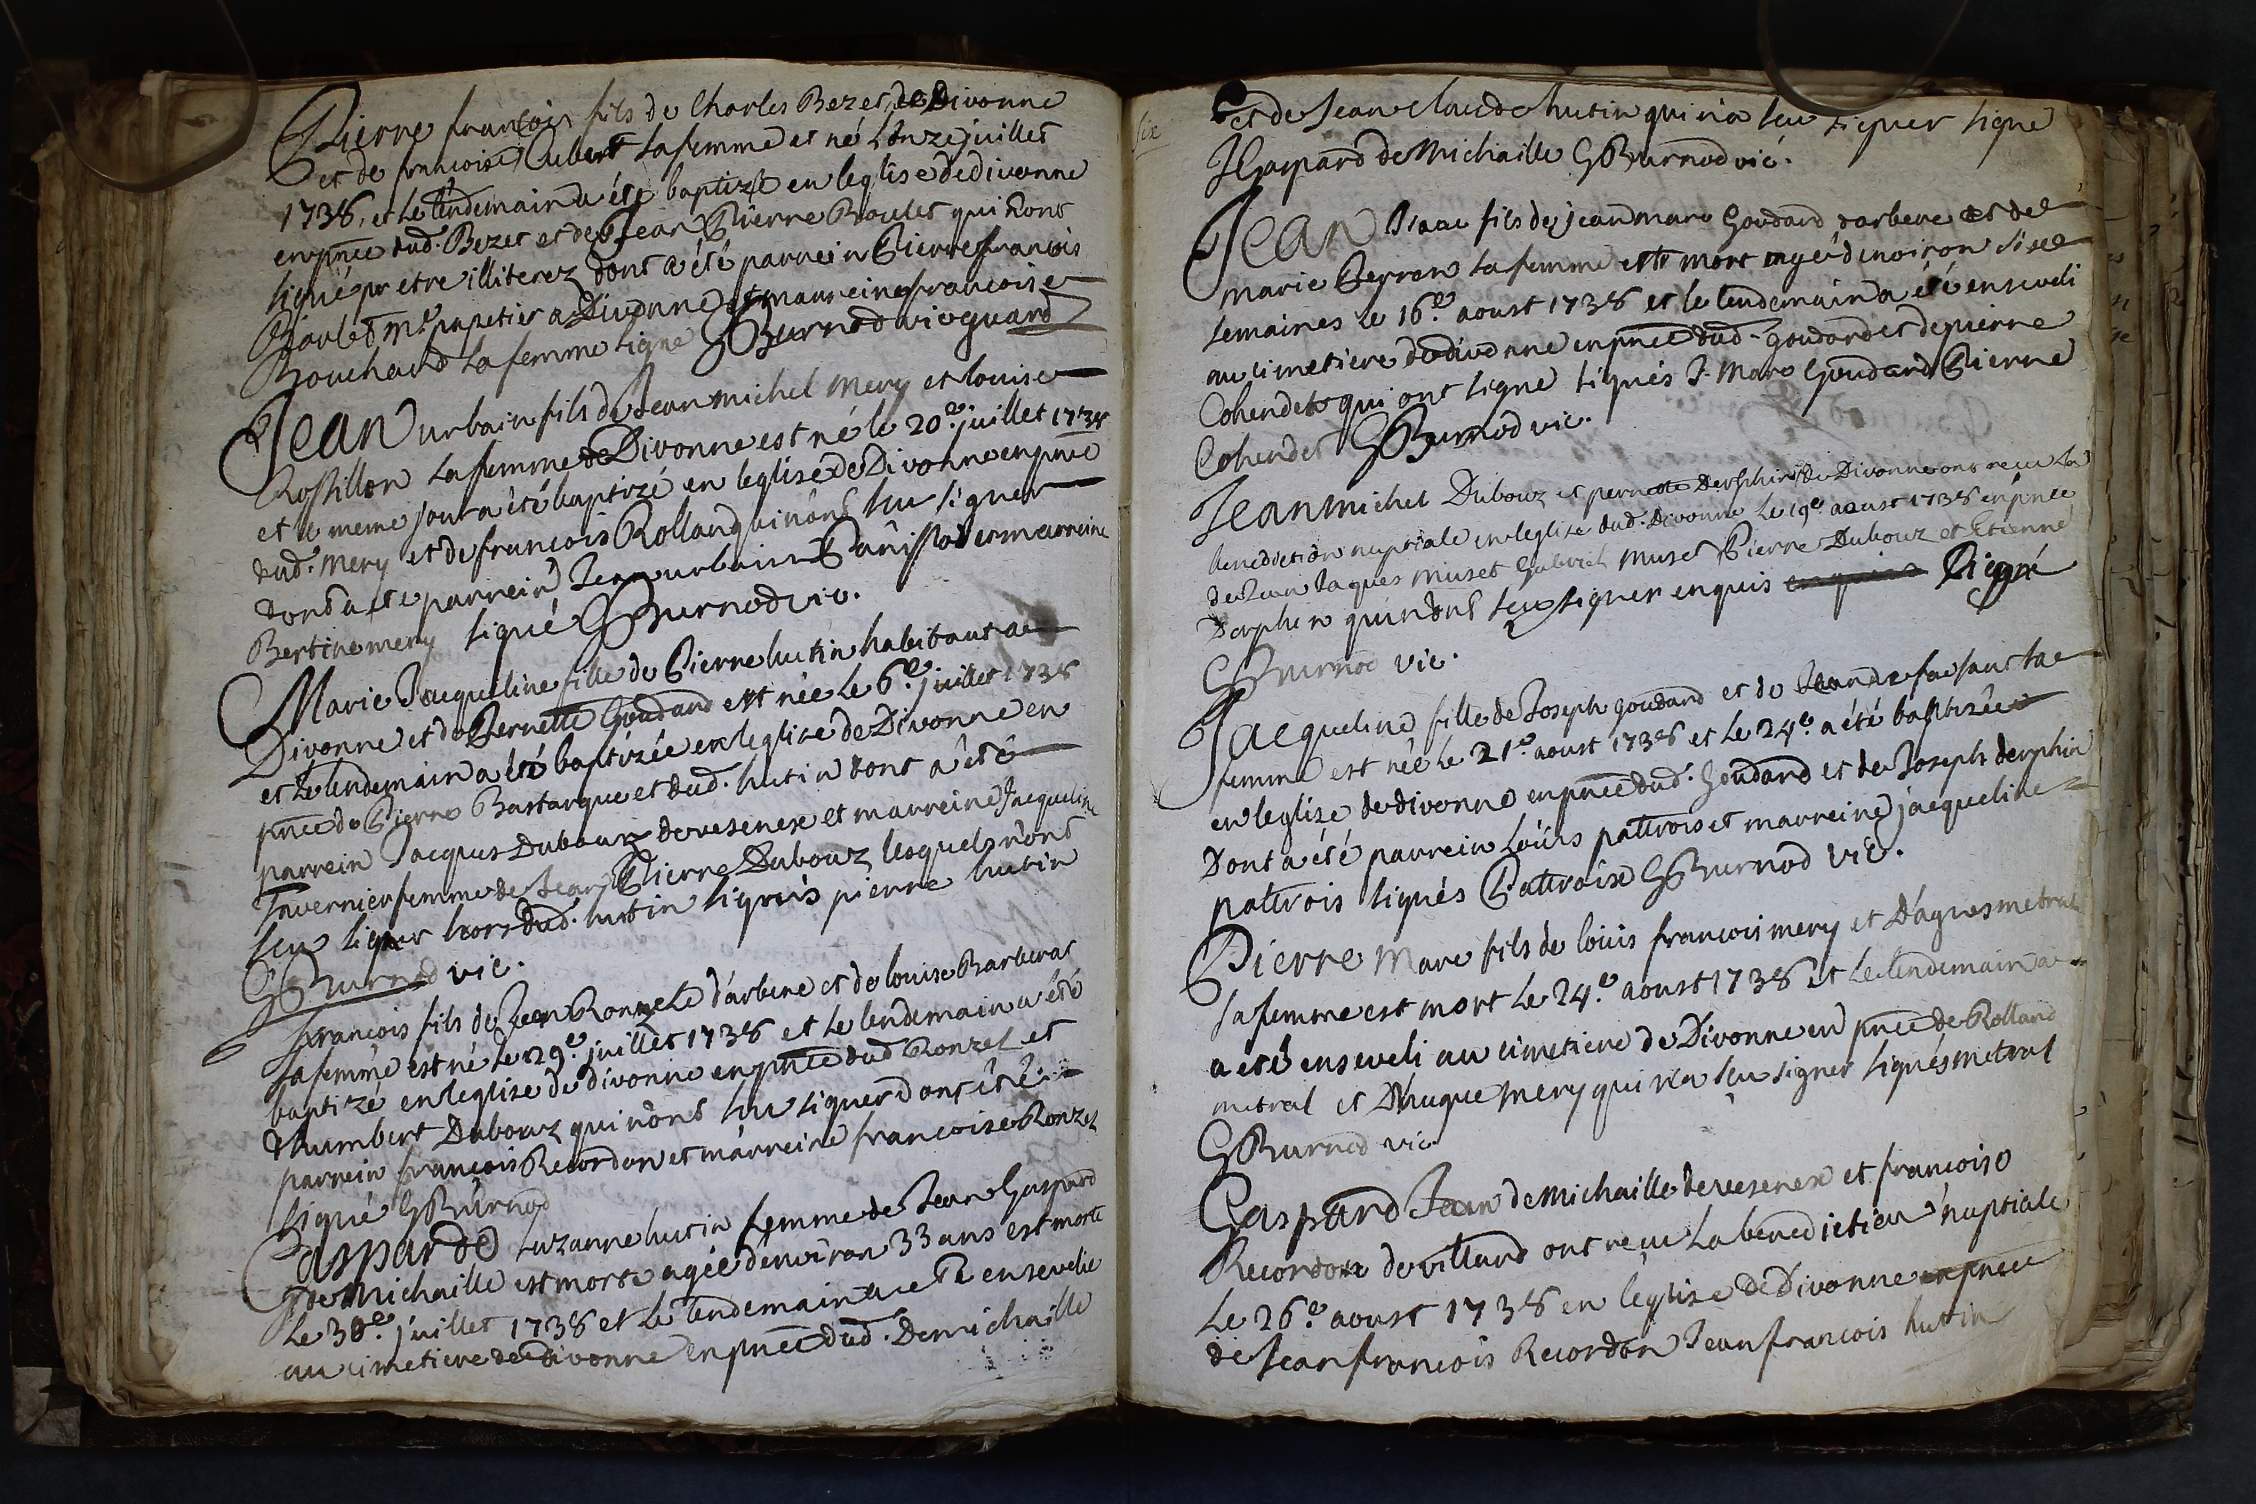 Pierre francois fils de Charles Bezet de Divonne
et de francoise Cubert sa femme et né L'onze juillet
1738, et le lendemain a été baptizé en leglise de divonne
en pnce dud. Bezet et de Jean Pierre Boulet qui n'ont
signé pr etre illiterez dont a été parrein Pierre francois
Boulet me papetier a Divonne et marreine francoise
Bouchard sa femme signé GBurnod vic
Jean urbain fils de Jean michel mery et louise
Rossillon sa femme de Divonne est né le 20e. juillet 1738
et le meme jour a été baptizé en leglise de Divonne en pnce
dud. mery et de francois Rolland qui n'ont sceu signer
dont a ete parrein Jean urbain et marreine
Bertine mery signé GBurnod vic.
Marie Jacqueline fille de Pierre hutin habitant a
Divonne et de Pernette Goudard est née le 6e. juillet 1738
et le lendemain a été baptizée en leglise de Divonne en
pnce de Pierre Bastarque et dud. hutin dont a été
parrein Jacques Dubouz de vesenex et marreine Jacqueline
Tavernier femme de Jean Pierre Dubouz lesquels n'ont
sceu signer hors dud. hutin signés pierre hutin
GBurnod vic.
francois fils de Jean Ronzel d'arbere et de louise Barberat
sa femme est né le 29e. juillet 1738 et le lendemain a été
baptizé en leglize de divonne en pnce dud Ronzel et
d'humbert Dubouz qui n'ont sceu signer dont été
parrein francois Recordon et marreine francoise Ronzel
signé GBurnod
Gasparde suzanne hutin femme de Jean Gaspard
de Michaille est morte agée denviron 33 ans est morte
le 30e. juillet 1738 et le lendemain a ete ensevelie
au cimetiere de Divonne en pnce dud. De michaille
six
et de Jean claude hutin qui n'a sceu signer signé
JGaspard de Michaille GBurnod vic.
Jean Isaac fils de jean marc Goudard darbere et de
marie Perron sa femme est mort agé d'environ six
semaines le 16e. aoust 1738 et le lendemain a été enseveli
au cimetiere de divonne en pnce dud. goudard et de pierre
Cohendet qui ont signé signés J. Marc Goudard Pierre
Cohendet GBurnod vic.
Jean michel Dubouz et pernette Derphin de Divonne ont receu la
benediction nuptiale en leglize dud. Divonne le 19e. aoust 1738 en pnce
de Jean Jaques muset Gabriel muset Pierre Dubouz et Etienne
Derphin qui n'ont sceu signer enquis enquis Signé
GBurnod vic.
Jacqueline fille de Joseph goudard et de Jeanne sa
femme est née le 21e. aoust 1738 et le 24e. a été baptizée
en leglize de divonne en pnce dud. Goudard et de Joseph derphin
Dont a été parrein Loüis pattrois et marreine jacqueline
pattrois signés Pattroix GBurnod vic.
Pierre Marc fils de loüis francois mery et D'agnes metral
sa femme est mort le 24e. aoust 1738 et le lendemain a
a eté enseveli au cimetiere de Divonne en pnce de Rolland
metral et D'huque mery qui n'a sceu signer signés metral
GBurnod vic
Gaspard Jean de Michaille de vesenex et francoise
Recordon de villard ont receu la benediction nuptiale
le 26e. aoust 1738 en l'eglize de Divonne en pnce
de Jean francois Recordon Jean francois hutin